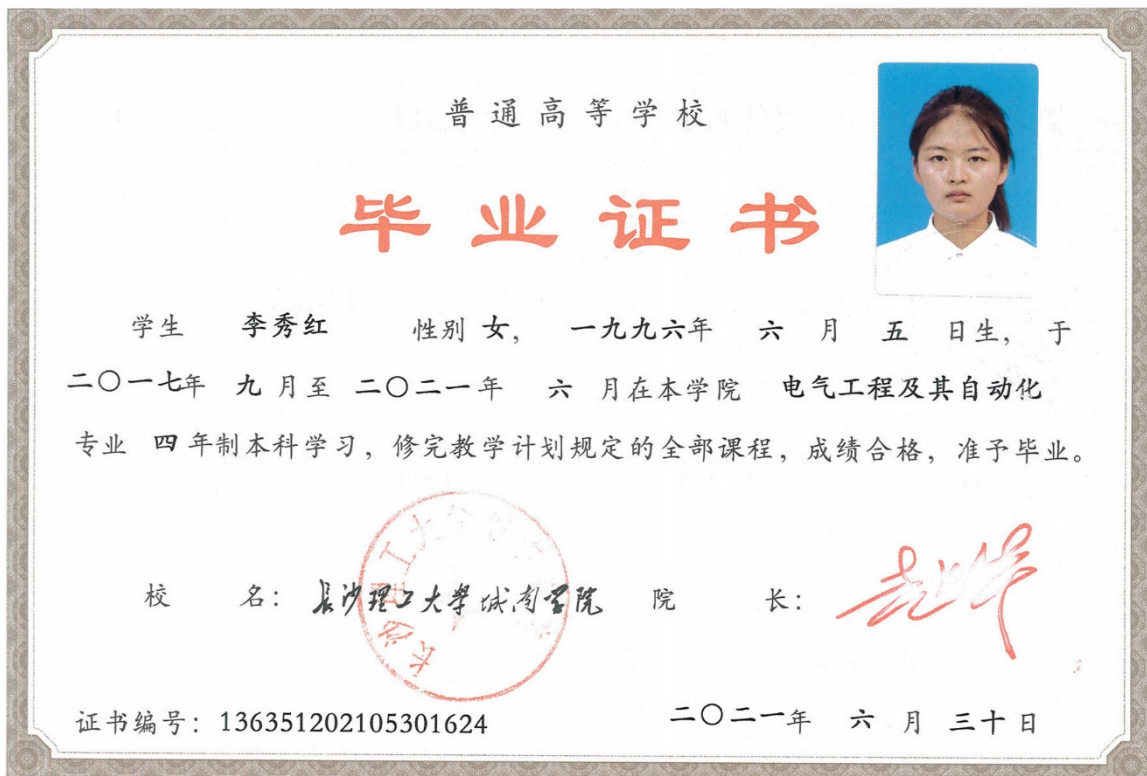 普通高等学校
毕业证书
学生 李秀红 性别 女, 一九九六年 六 月 五 日生, 于
二〇一七年 九 月至 二〇二一年 六 月在本学院 电气工程及其自动化
专业 四 年制本科学习, 修完教学计划规定的全部课程, 成绩合格, 准予毕业。
长沙理工大学
校 名: 长沙理工大学城南学院 院 长:
证书编号: 136351202105301624 二〇二一年 六 月 三十日